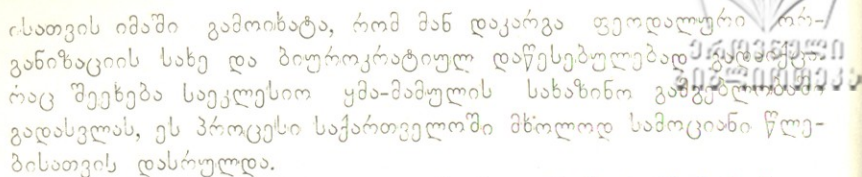 ისათვის იმაში გამოიხატა, რომ მან დაკარგა ფეოდალური ორ-
განიზაციის სახე და ბიუროკრატიულ დაწესებულებად გადაიქცა.
რაც შეეხება საეკლესიო ყმა-მამულის სახაზინო გამგებლობაში
გადასვლას, ეს პროცესი საქართველოში მხოლოდ სამოციანი წლე-
ბისათვის დასრულდა.
ეროვნული
ბიბლიოთეკა